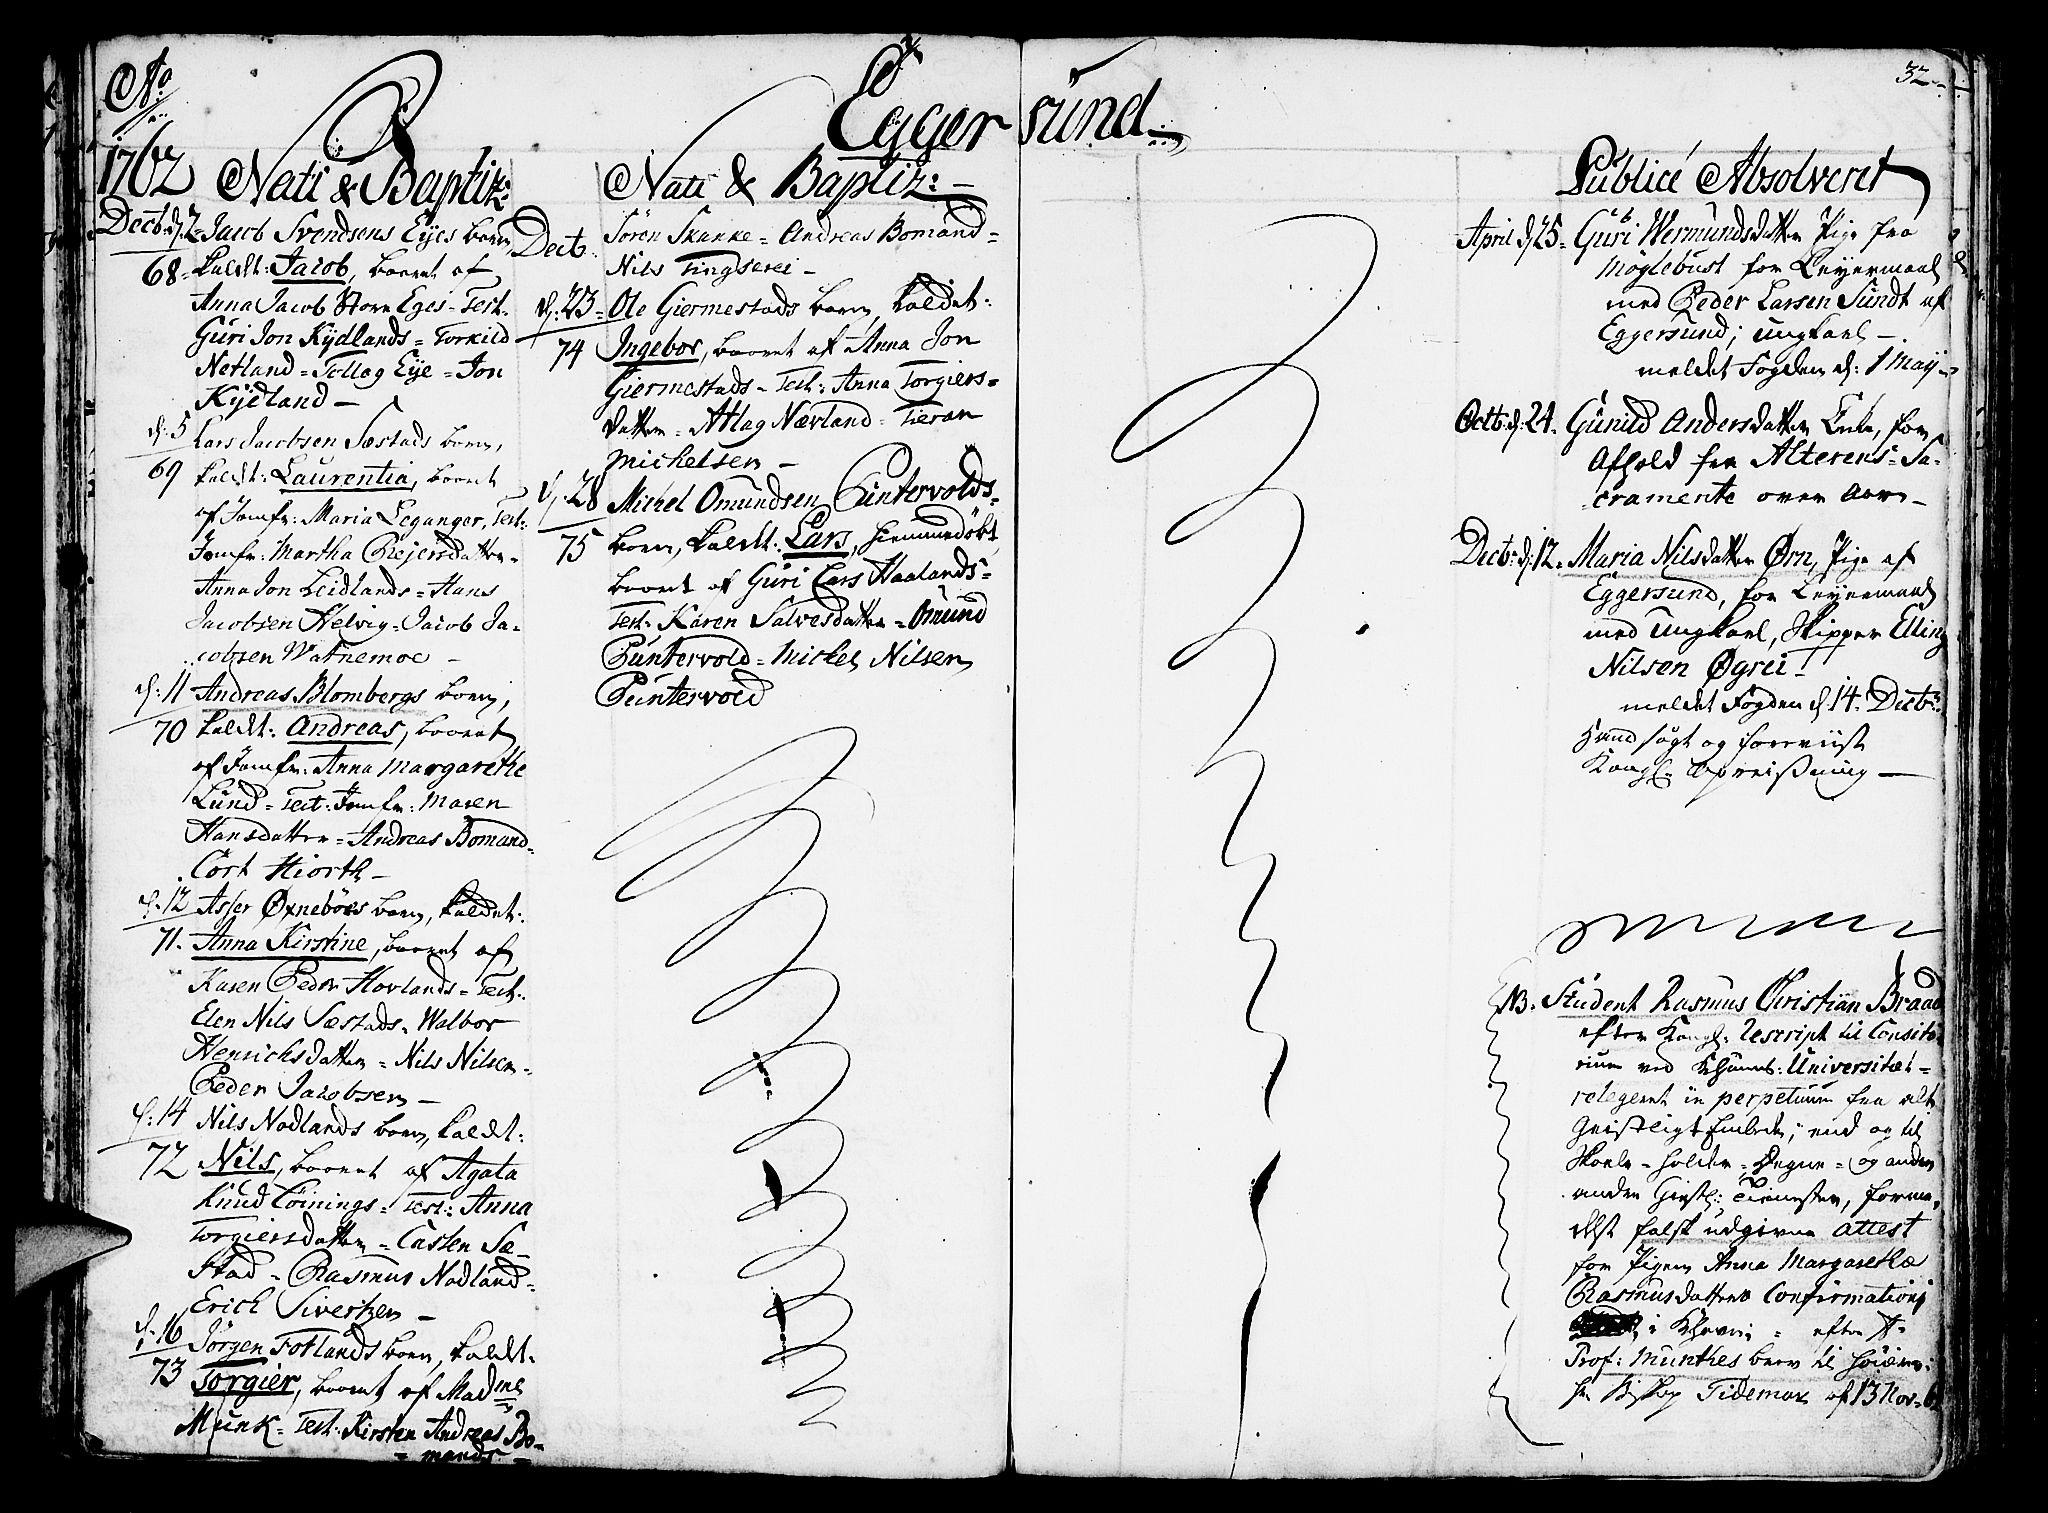 32
Egger sund
Ao
1762
Nati & Baptiz:
Decb: d: 2 Jacob Svendsens Eyes barn,
68 kaldt: Jacob, baaret af
Anna Jacob Store Eges - Test:
Guri Jon Kydlands = Torkild
Netland = Tollag Eye = Jon
Kydland -
d: 5 Lars Jacobsen Sæstads barn,
69 kaldt: Laurentia, baaret
af Jomfr: Maria Leganger, Test:
Jomfr: Martha Rejersdatter =
Anna Jon Leidlands = Hans
Jacobsen Helvig = Jacob Ja-
cobsen Watnemoe -
d: 11 Andreas Blombergs barn,
70 kaldt: Andreas, baaret
af Jomfr: Anna Margarethe
Lund = Test: Jomfr: Maren
Hansdatter = Andreas Bomand =
Cort Hiorth -
d: 12 Asser Øxneböes barn, kaldet:
71 Anna Kirstine, baaret af
Karen Peder Hovlands = Test:
Elen Nils Sæstads = Walbor
Henrichsdatter = Nils Nilsen =
Peder Jacobsen -
d: 14 Nils Nodlands barn, kaldt:
72 Nils, baaret af Agata
Knud Löinings = Test: Anna
Torgiersdatter = Casten Sæ-
stad = Rasmus Nodland =
Erich Sivertzen -
d: 16 Jörgen Fotlands barn, kaldt:
73 Torgier, baaret af Madme
Munk = Test: Kirsten Andreas Bo-
mands -
Nati & Baptiz: -
Decb. Sören Skanke = Andreas Bomand =
Nils Tingserei -
d: 23 Ole Giermestads barn, kaldet:
74 Ingebor, baaret af Anna Jon
Giermestads = Test: Anna Torgiers=
datter = Atlag Nævland = Tieran
Michelsen -
d: 28 Michel Omundsen Puntervolds
75 barn, kaldt: Lars, hiemmedöbt,
baaret af Guri Lars Haalands =
Test: Karen Salvesdatter = Omund
Puntervold = Mickel Nilsen
Puntervold
Publicé Absolveret
April d: 25 = Guri Wermundsdatter Pige fra
Möglebust for Leyermaal
med Peder Larsen Sundt af
Eggersund; ungkarl -
meldet Fogden d: 1 Maij
Octb: d: 24. Gunild Andersdatter Enke, for
Afhold fra Alterens = Sa-
cramente over Aar -
Decb: d: 12 = Maria Nilsdatter Ørn, Pige af
Eggersund, for Leyermaal
med ungkarl, Skipper Elling
Nilsen Øgrei -
meldet Fogden d: 14 Decb:
hand sögt og foreviist
Kongl:
NB. Student Rasmus Christian Braad
efter Kongl: Rescript til Consito-
rium ved Universitæt =
relegeret in perpetuum fra alt
Geistligt Embede; end og til
Skole = holder = Degne = og anden
andre Tienester, forme-
delst falsk udgivne Attest
for Pigen Anna Margarethe
Rasmusdatters Confirmation
i efter
Prof: Munthes brev til
hr Biskop Tidemar af 13 Nov: 62